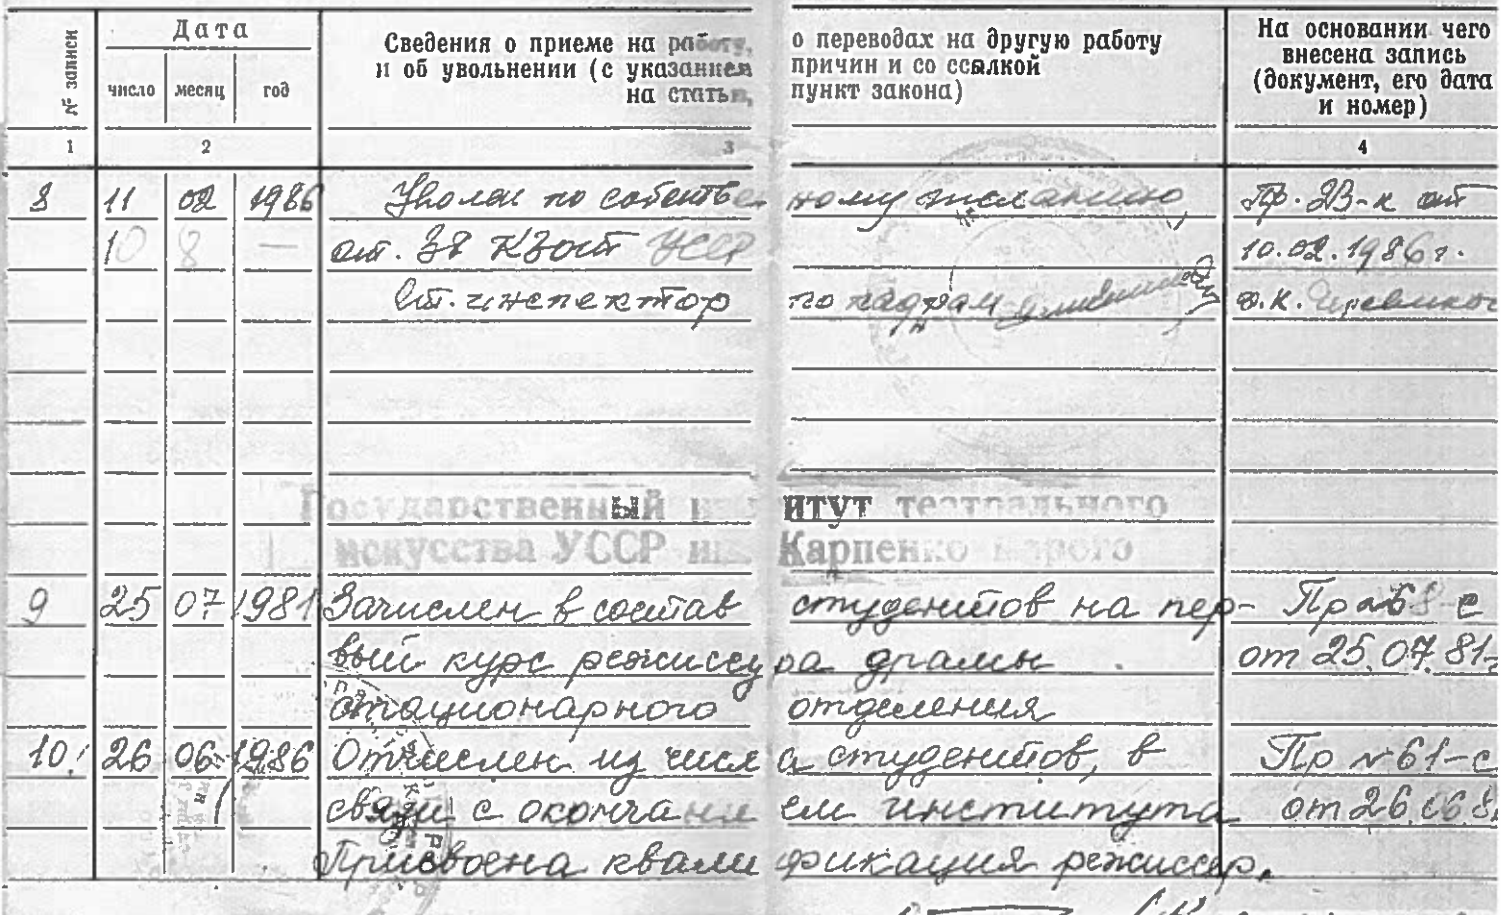 № записи
Дата
число месяц год
Сведения о приеме на работу, о переводах на другую работу
и об увольнении (с указанием причин и со ссылкой
на статью, пункт закона)
На основании чего
внесена запись
(документ, его дата
и номер)
1 2 3 4
8 11 02 1986 Уволен по собственному желанию, Пр. 23-к от
ст. 38 КЗоТ УССР 10.02.1986 г.
Ст. инспектор по кадрам
Государственный институт театрального
искусства УССР им. Карпенко-Карого
9 25 07 1981 Зачислен в состав студентов на пер- Пр №68-с
вый курс режиссура драмы от 25.07.81г
стационарного отделения
10. 26 06 1986 Отчислен из числа студентов, в Пр №61-с
связи с окончанием института от 26.06.8
Присвоена квалификация режиссер.